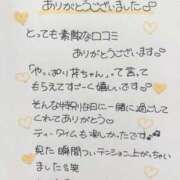 ありがとうございました
とっても素敵な口コミ
ありがとうございます
「やっぱり芹ちゃん」って言って
もらえてすごく嬉しいです
そんな特別な日に一緒に過ごして
くれてありがとう
ティータイムも楽しかったです
見た瞬間ついテンション上がっちゃい
ました笑